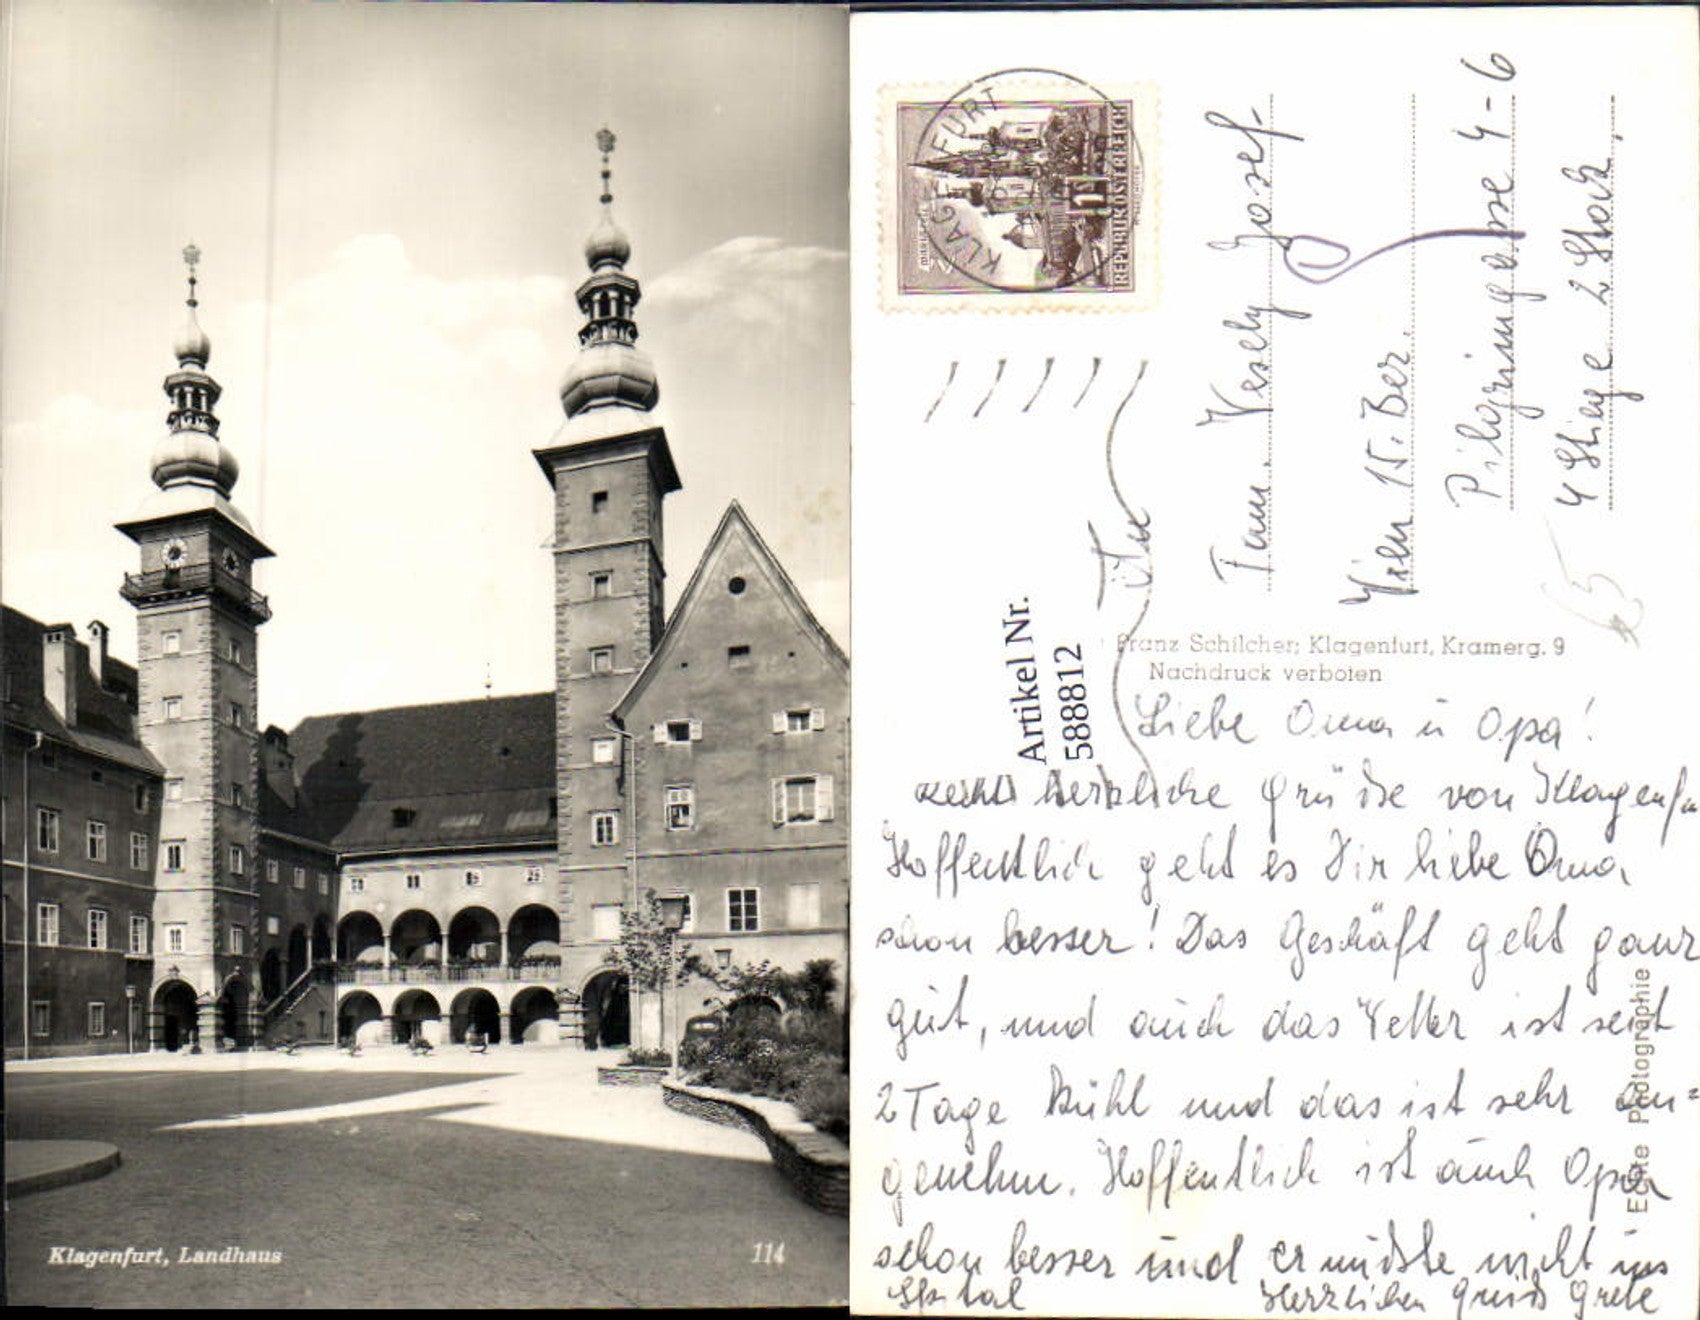 Klagenfurt, Landhaus
114
KLAGENFURT
REPUBLIK ÖSTERREICH
1
Fam. Vesely Josef
Wien 15. Bez.
Pilgrimgasse 4-6
4 Stiege 2 Stock
Artikel Nr.
588812
Franz Schilcher; Klagenfurt, Kramerg. 9
Nachdruck verboten
Liebe Oma u Opa!
recht herzliche Grüsse von Klagenfu
Hoffentlich geht es Dir liebe Oma,
schon besser! Das Geschäft geht ganz
gut, und auch das Wetter ist seit
2 Tage kühl und das ist sehr an=
genehm. Hoffentlich ist auch Opa
schon besser und er müsste nicht ins
Spital Herzlichen Gruss Grete
Echte Photographie